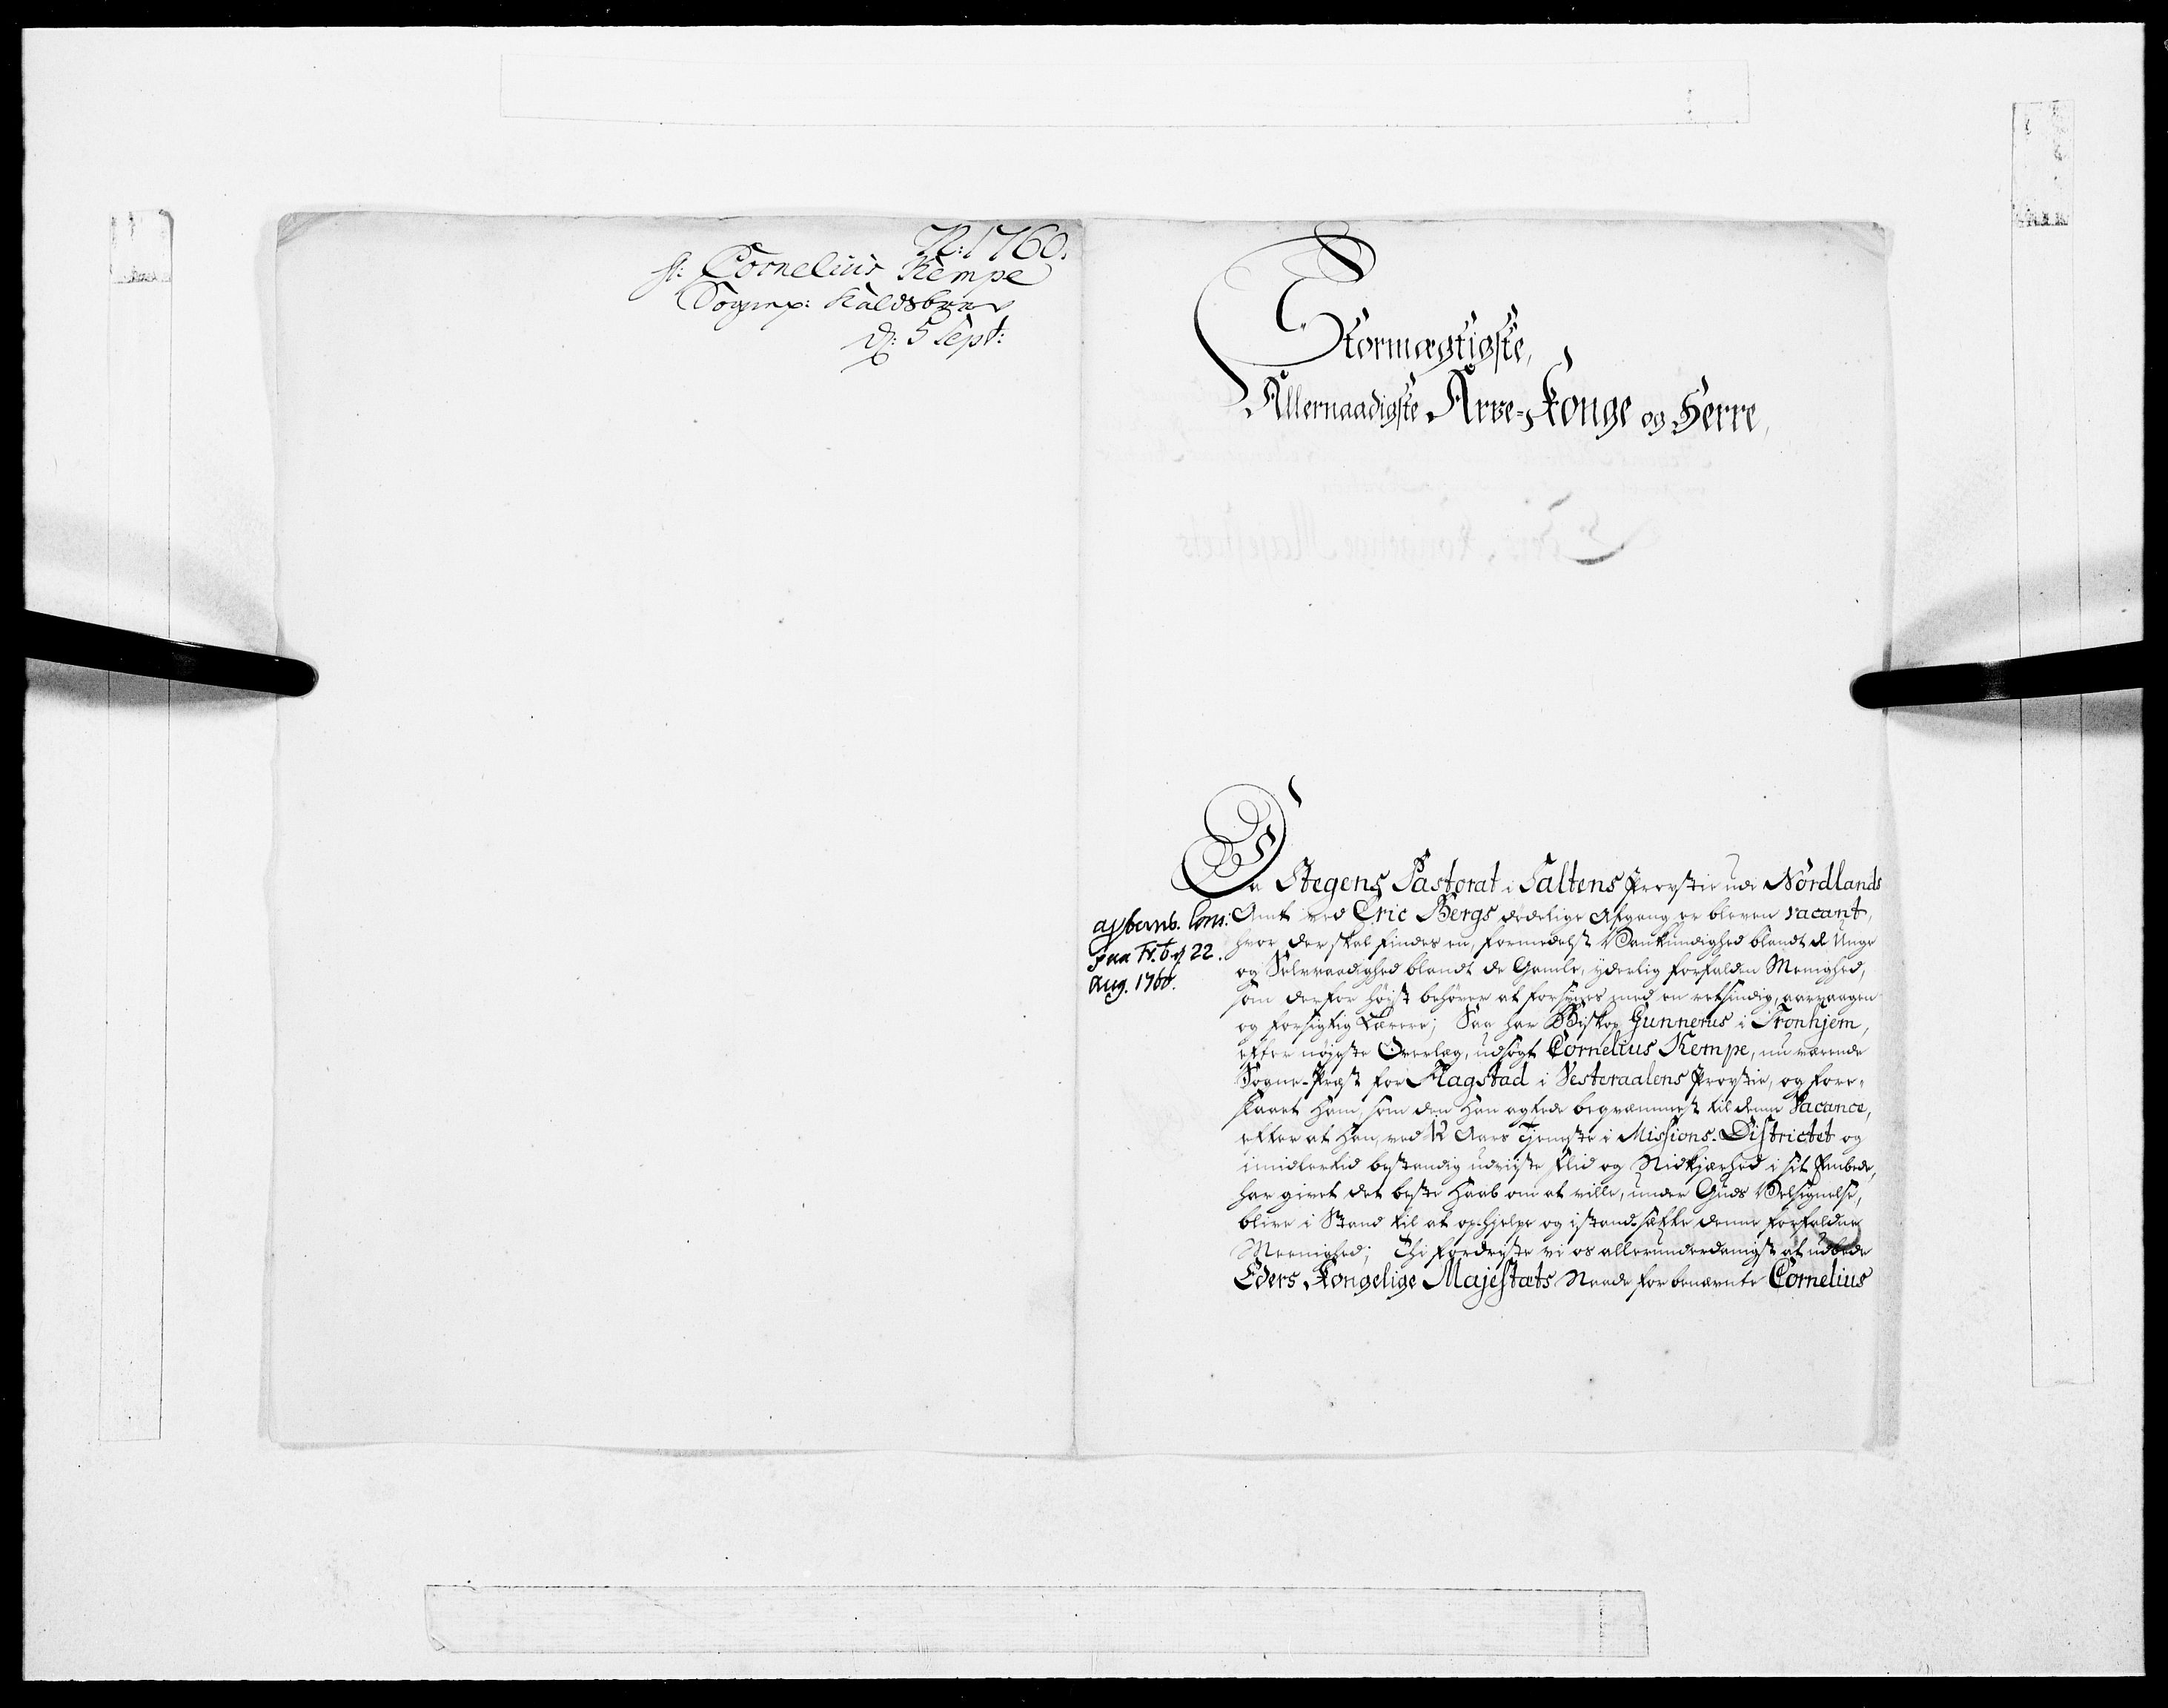 N: 1760.
h: Cornelius Kempe
Sognep: Kaldsbrev
d: 5 Sept:
Stormægtigste,
Allernaadigste Arve-Konge og Herre,
Da Stegens Pastorat i Saltens Provstie udi Nordlands
Amt ved Eric Bergs dødelige Afgang er bleven vacant,
hvor der skal findes en, formedelst Vankundighed blandt de Unge
og Selvraadighed blandt de Gamle, yderlig forfalden Menighed,
som derfor høist behøver at forsynes med en retsindig, aarvaagen
og forsigtig Lærere; Saa har Biskop Gunnerus i Tronhjem,
efter nøyeste Overlæg, udsøgt Cornelius Kempe, nu værende
Sogne-Præst for Flagstad i Vesteraalens Provstie, og fore-
slaaet Ham, som den Han agtede beqvæmmest til denne Vacance,
efter at Han, ved 12 Aars Tjeneste i Missions-Districtet og
imidlertid bestandig udviiste Flid og Nidkjærhed i sit Embede,
har givet det beste Haab om at ville, under Guds Velsignelse,
blive i Stand til at op-hjelpe og istand-sætte denne forfaldne
Meenighed; Thi fordriste vi os allerunderdanigst at udbede
Eders Kongelige Majestæts Naade for benævnte Cornelius
Cons:
paa Fr.b. d 22.
Aug. 1760.